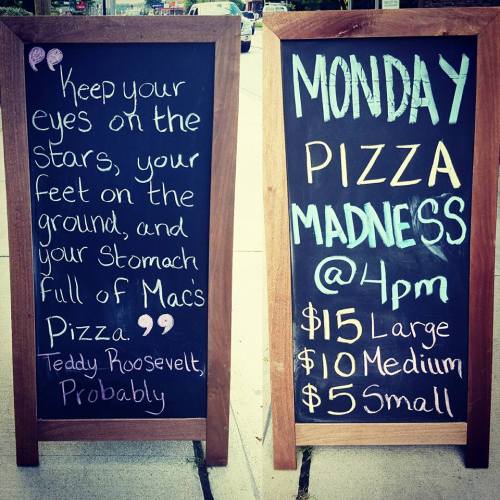 "Keep your
eyes on the
stars, your
feet on the
ground, and
your stomach
full of Mac's
Pizza."
Teddy Roosevelt,
Probably
MONDAY
PIZZA
MADNESS
@4pm
$15 Large
$10 Medium
$5 Small